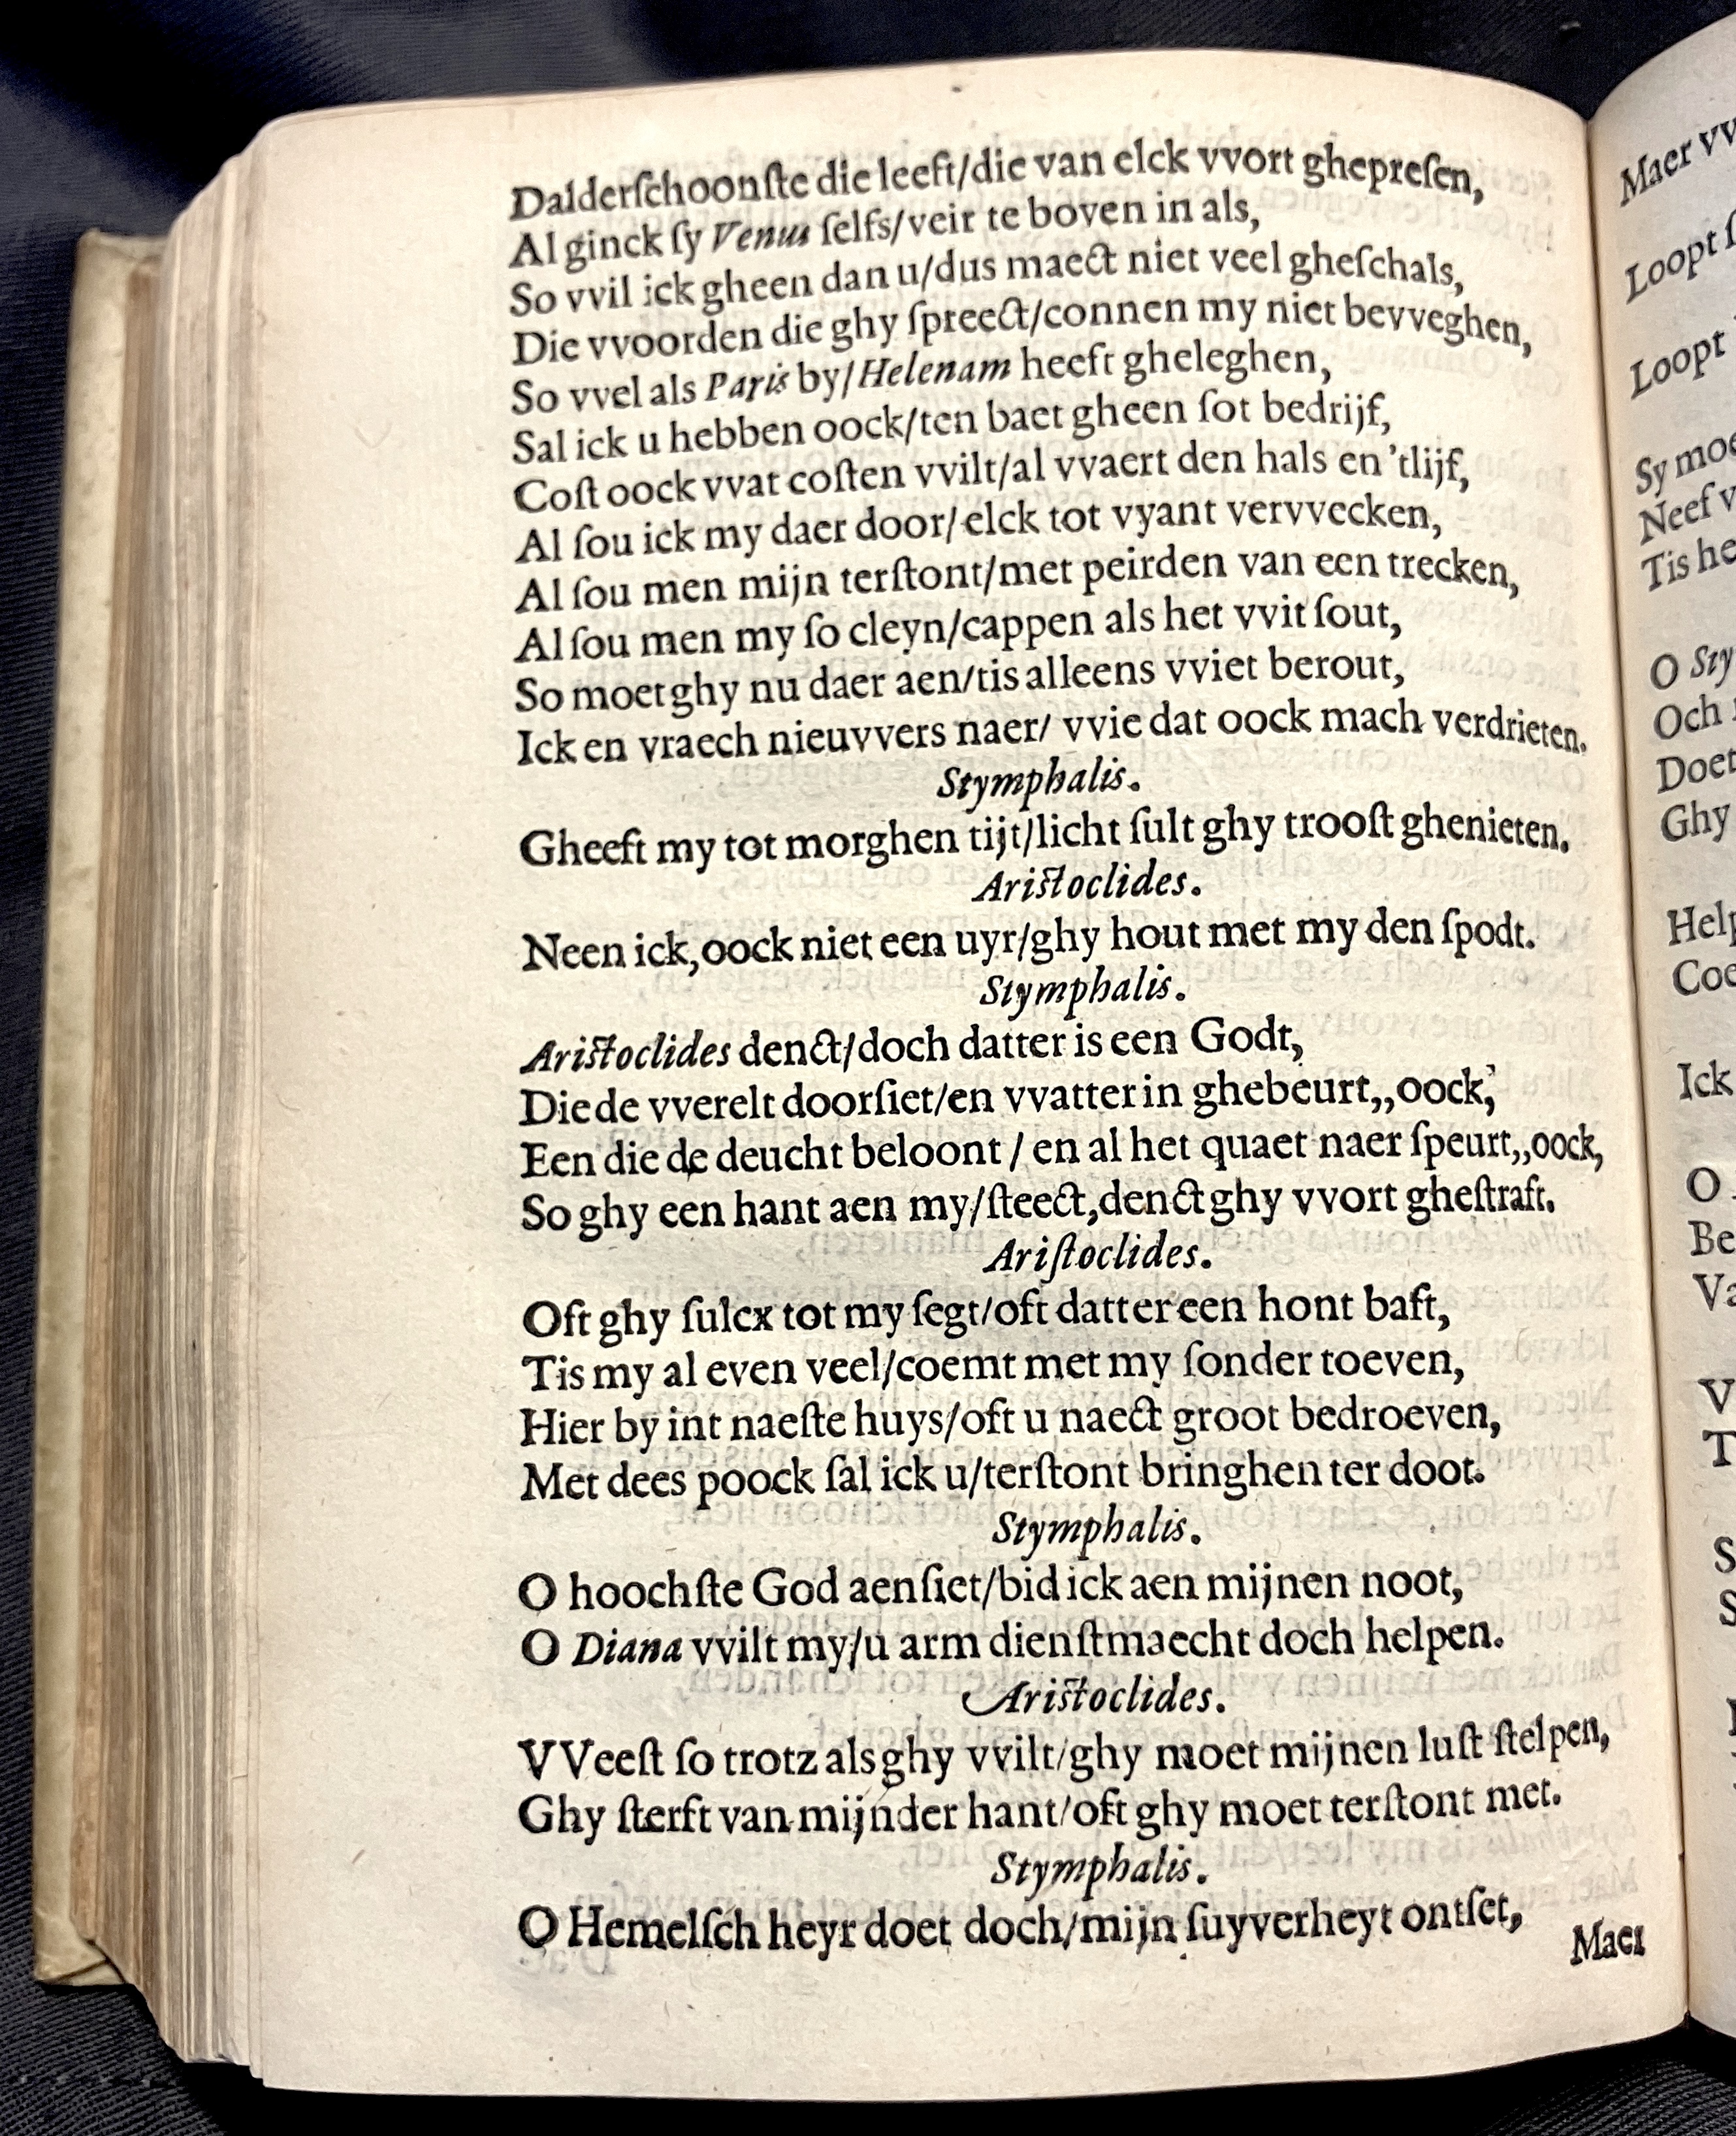 Dalderſchoonſte die leeft/die van elck vvort ghepreſen,
Al ginck ſy Venus ſelfs/veir te boven in als,
So vvil ick gheen dan u/dus maect niet veel gheſchals,
Die vvoorden die ghy ſpreect/connen my niet bevveghen,
So vvel als Paris by/Helenam heeft gheleghen,
Sal ick u hebben oock/ten baet gheen ſot bedrijf,
Coſt oock vvat coſten vvilt/al vvaert den hals en 'tlijf,
Al ſou ick my daer door/elck tot vyant vervvecken,
Al ſou men mijn terſtont/met peirden van een trecken,
Al ſou men my ſo cleyn/cappen als het vvit ſout,
So moet ghy nu daer aen/tis alleens vviet berout,
Ick en vraech nieuvvers naer/ vvie dat oock mach verdrieten.
Stymphalis.
Gheeft my tot morghen tijt/licht ſult ghy trooſt ghenieten.
Ariſtoclides.
Neen ick,oock niet een uyr/ghy hout met my den ſpodt.
Stymphalis.
Ariſtoclides denct/doch datter is een Godt,
Die de vverelt doorſiet/en vvatter in ghebeurt,,oock,
Een die de deucht beloont / en al het quaet naer ſpeurt,,oock,
So ghy een hant aen my/ſteect,denct ghy vvort gheſtraft.
Ariſtoclides.
Oft ghy ſulcx tot my ſegt/oft datter een hont baft,
Tis my al even veel/coemt met my ſonder toeven,
Hier by int naeſte huys/oft u naect groot bedroeven,
Met dees poock ſal ick u/terſtont bringhen ter doot.
Stymphalis.
O hoochſte God aenſiet/bid ick aen mijnen noot,
O Diana vvilt my/u arm dienſtmaecht doch helpen.
Ariſtoclides.
VVeeſt ſo trotz als ghy vvilt/ghy moet mijnen luſt ſtelpen,
Ghy ſterft van mijnder hant/oft ghy moet terſtont met.
Stymphalis.
O Hemelſch heyr doet doch/mijn ſuyverheyt ontſet,
Maer
Maer
Loopt
Loopt
Sy
Neef
Tis
O
Och
Doet
Ghy
Ick
O